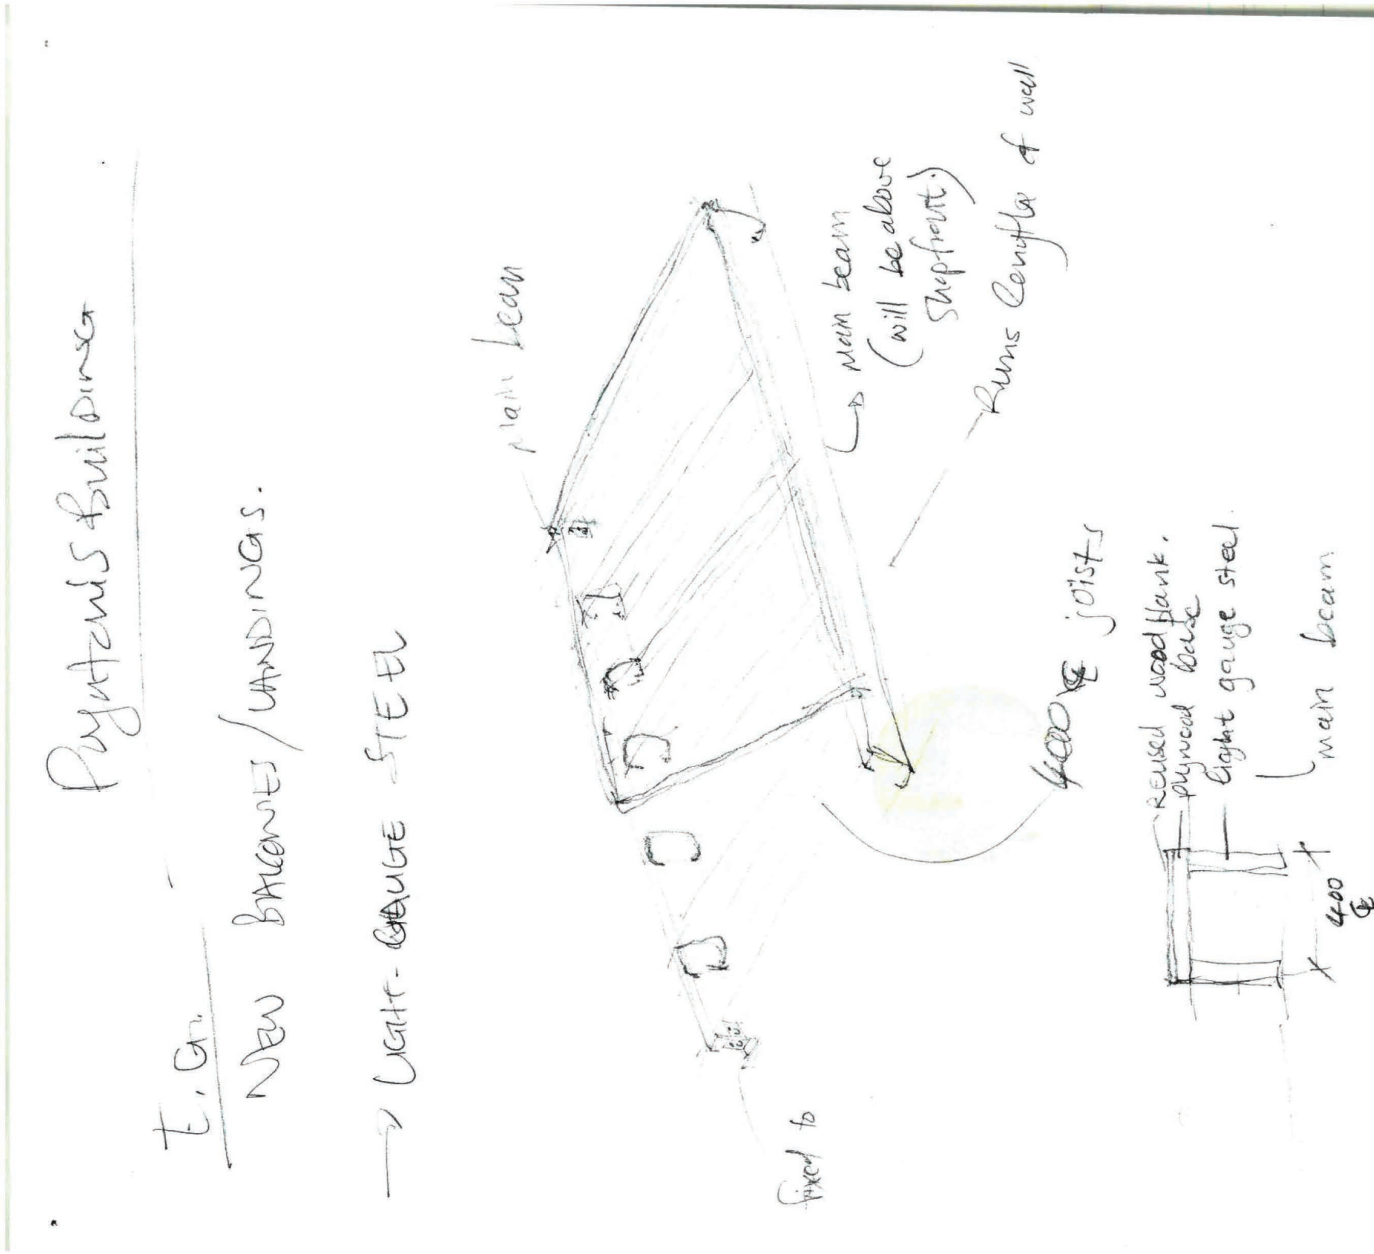 Building
E.G.
NEW BALCONIES/LANDINGS.
→ LIGHT-GAUGE STEEL
main beam
→ main beam
(will be above
shopfront.)
Runs length of wall
fixed to
400 ℄ joists
REUSED wood plank.
plywood base
light gauge steel.
main beam
400
℄